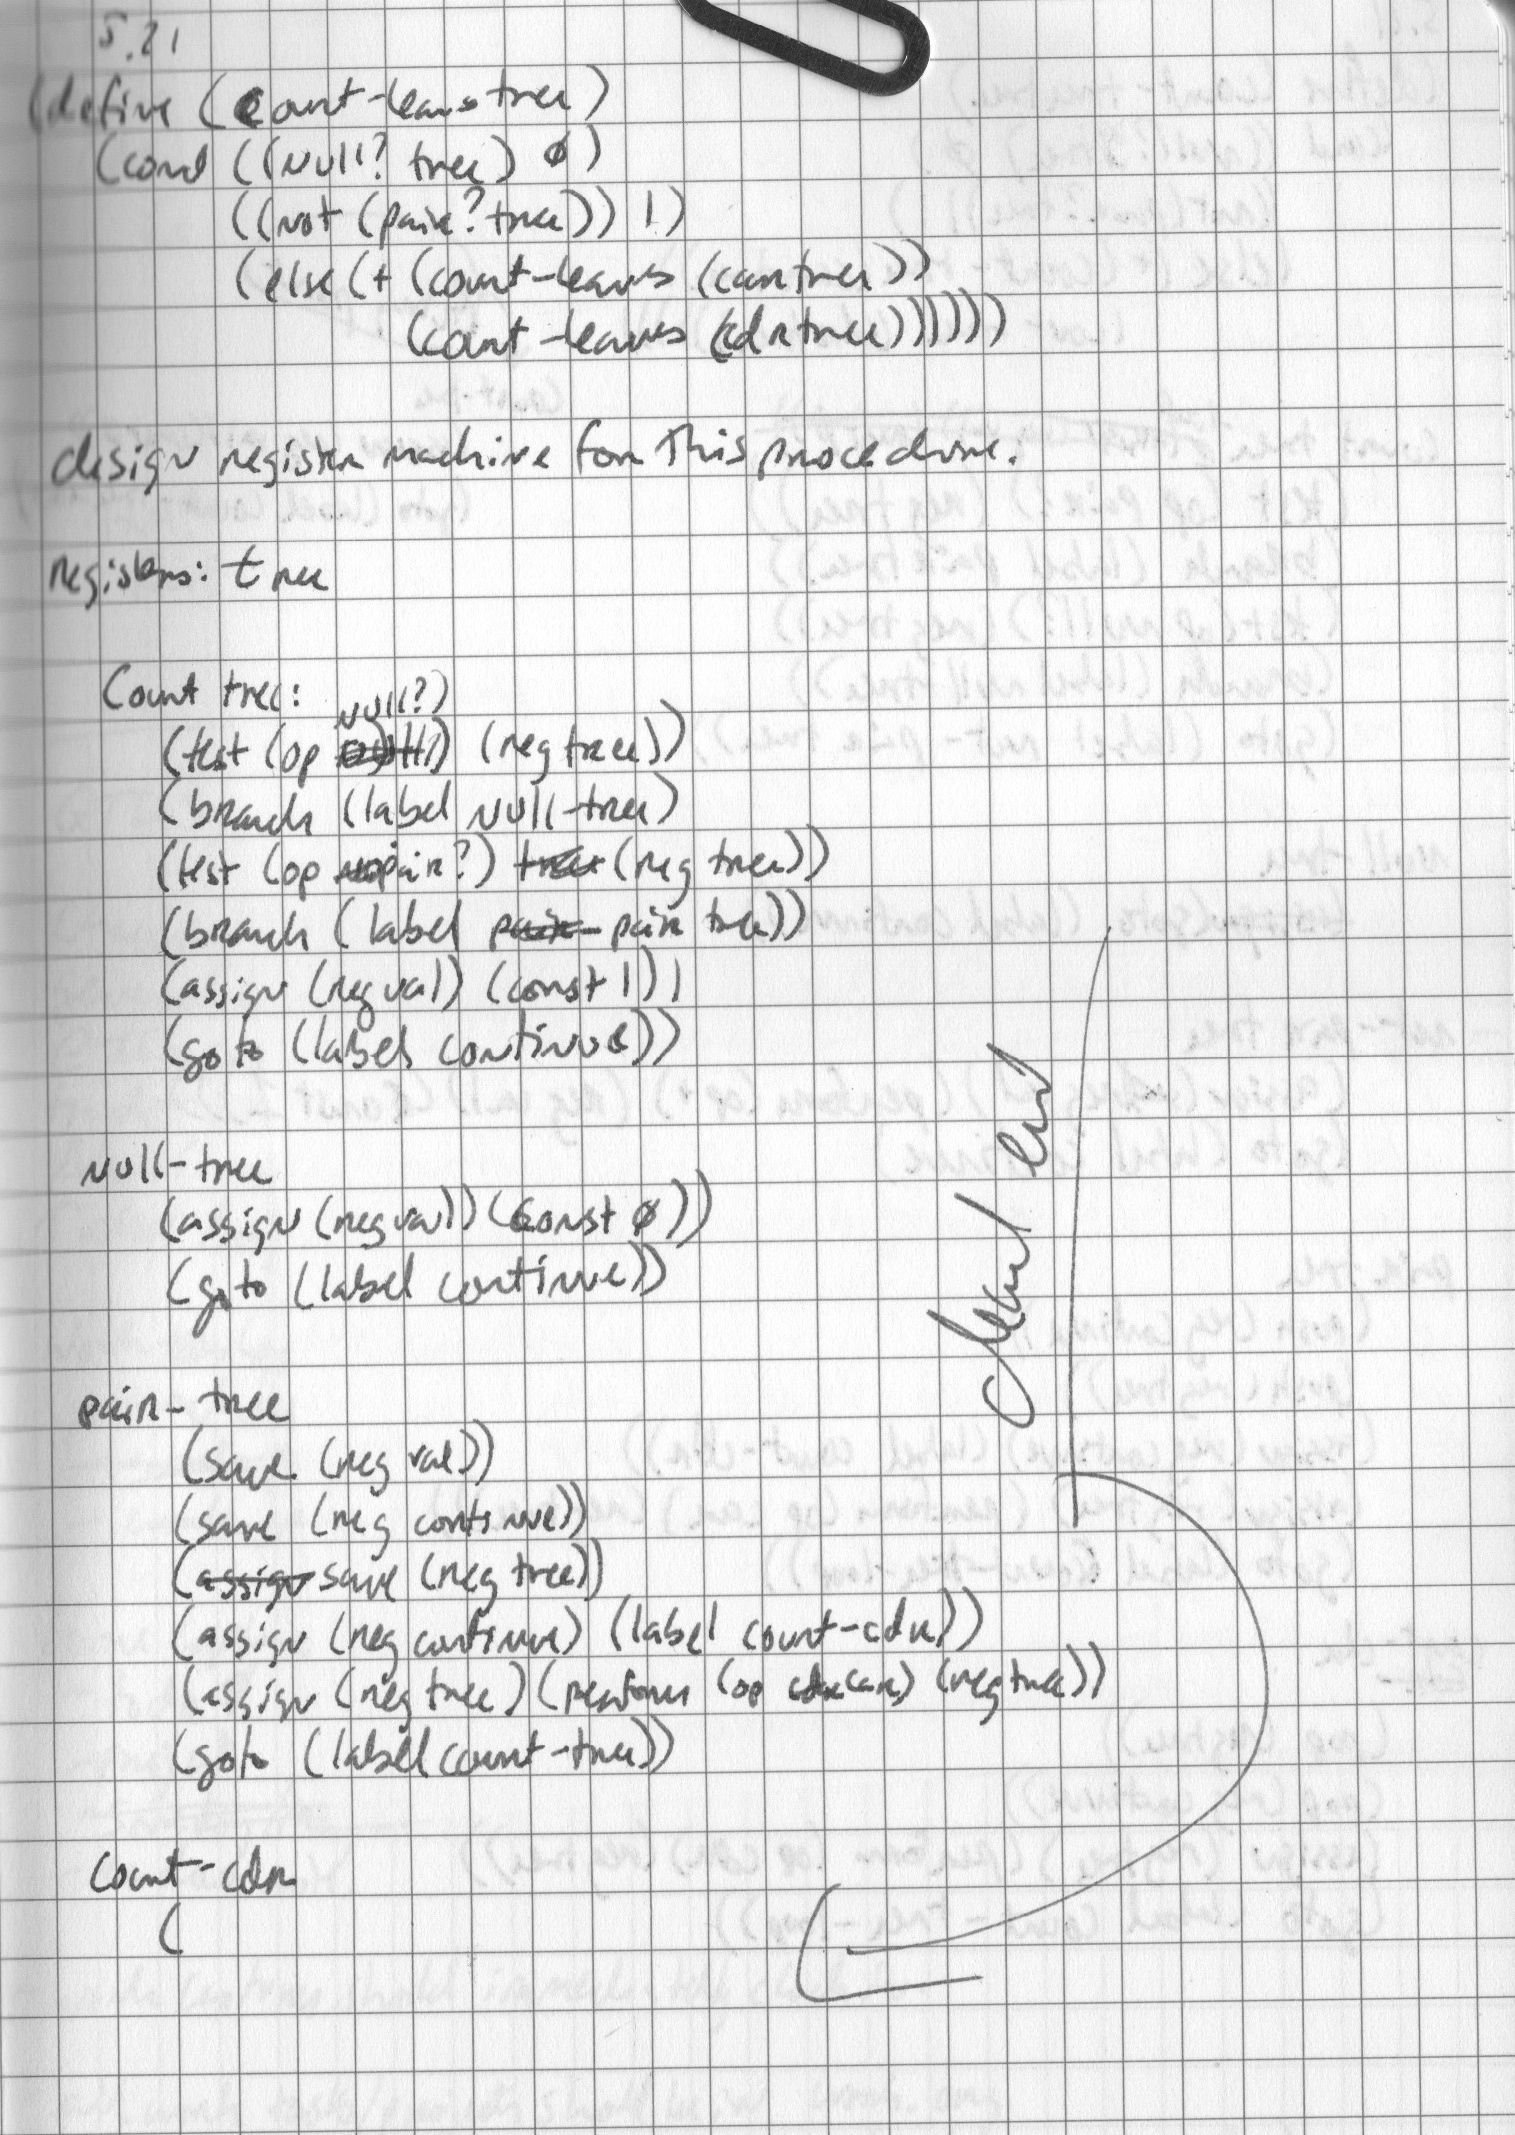 5.21
(define (count-leaves tree)
(cond ((null? tree) 0)
((not (pair? tree)) 1)
(else (+ (count-leaves (car tree))
(count-leaves (cdr tree))))))
design register machine for this procedure.
registers: tree
Count tree:
null?)
(test (op (reg tree))
(branch (label null-tree)
(test (op pair?) tree (reg tree))
(branch (label pair- pair tree))
(assign (reg val) (const 1))
(goto (label continue))
null-tree
(assign (reg val) (const 0))
(goto (label continue))
pair-tree
(save (reg val))
(save (reg continue))
(assign save (reg tree))
(assign (reg continue) (label count-cdr))
(assign (reg tree) (perform (op car) (reg tree))
(goto (label count-tree))
count-cdr
(